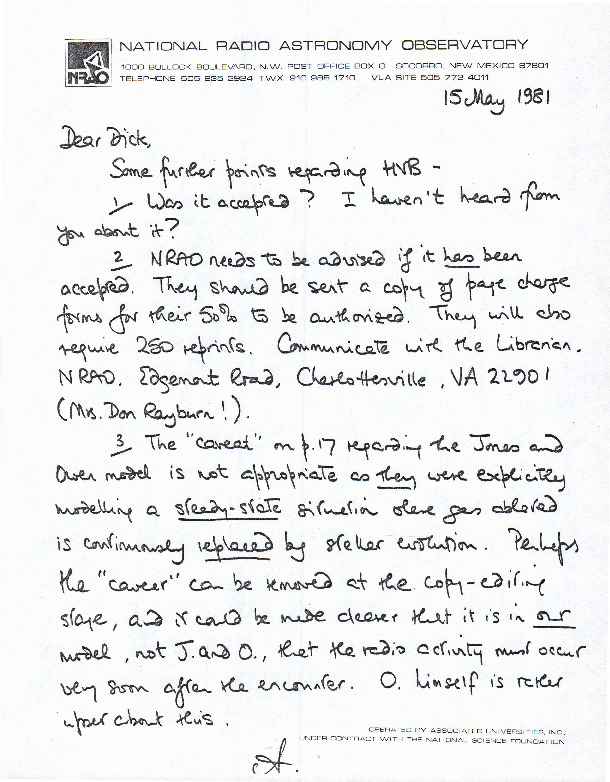 NRAO
NATIONAL RADIO ASTRONOMY OBSERVATORY
1000 BULLOCK BOULEVARD, N.W. POST OFFICE BOX O SOCORRO, NEW MEXICO 87801
TELEPHONE 505 835 2924 TWX 910 988 1710 VLA SITE 505 772 4011
15 May 1981
Dear Dick,
Some further points regarding HVB -
1 Was it accepted? I haven't heard from
you about it?
2 NRAO needs to be advised if it has been
accepted. They should be sent a copy of page charge
forms for their 50% to be authorised. They will also
require 250 reprints. Communicate with the Librarian.
NRAO, Edgemont Road, Charlottesville, VA 22901
(Mrs. Don Rayburn!).
3 The "caveat" on p.17 regarding the Jones and
Owen model is not appropriate as they were explicitly
modelling a steady-state situation where gas ablated
is continuously replaced by stellar evolution. Perhaps
the "caveat" can be removed at the copy-editing
stage, and it could be made clearer that it is in our
model, not J. and O., that the radio activity must occur
very soon after the encounter. O. himself is rather
upset about this.
OPERATED BY ASSOCIATED UNIVERSITIES, INC.,
UNDER CONTRACT WITH THE NATIONAL SCIENCE FOUNDATION